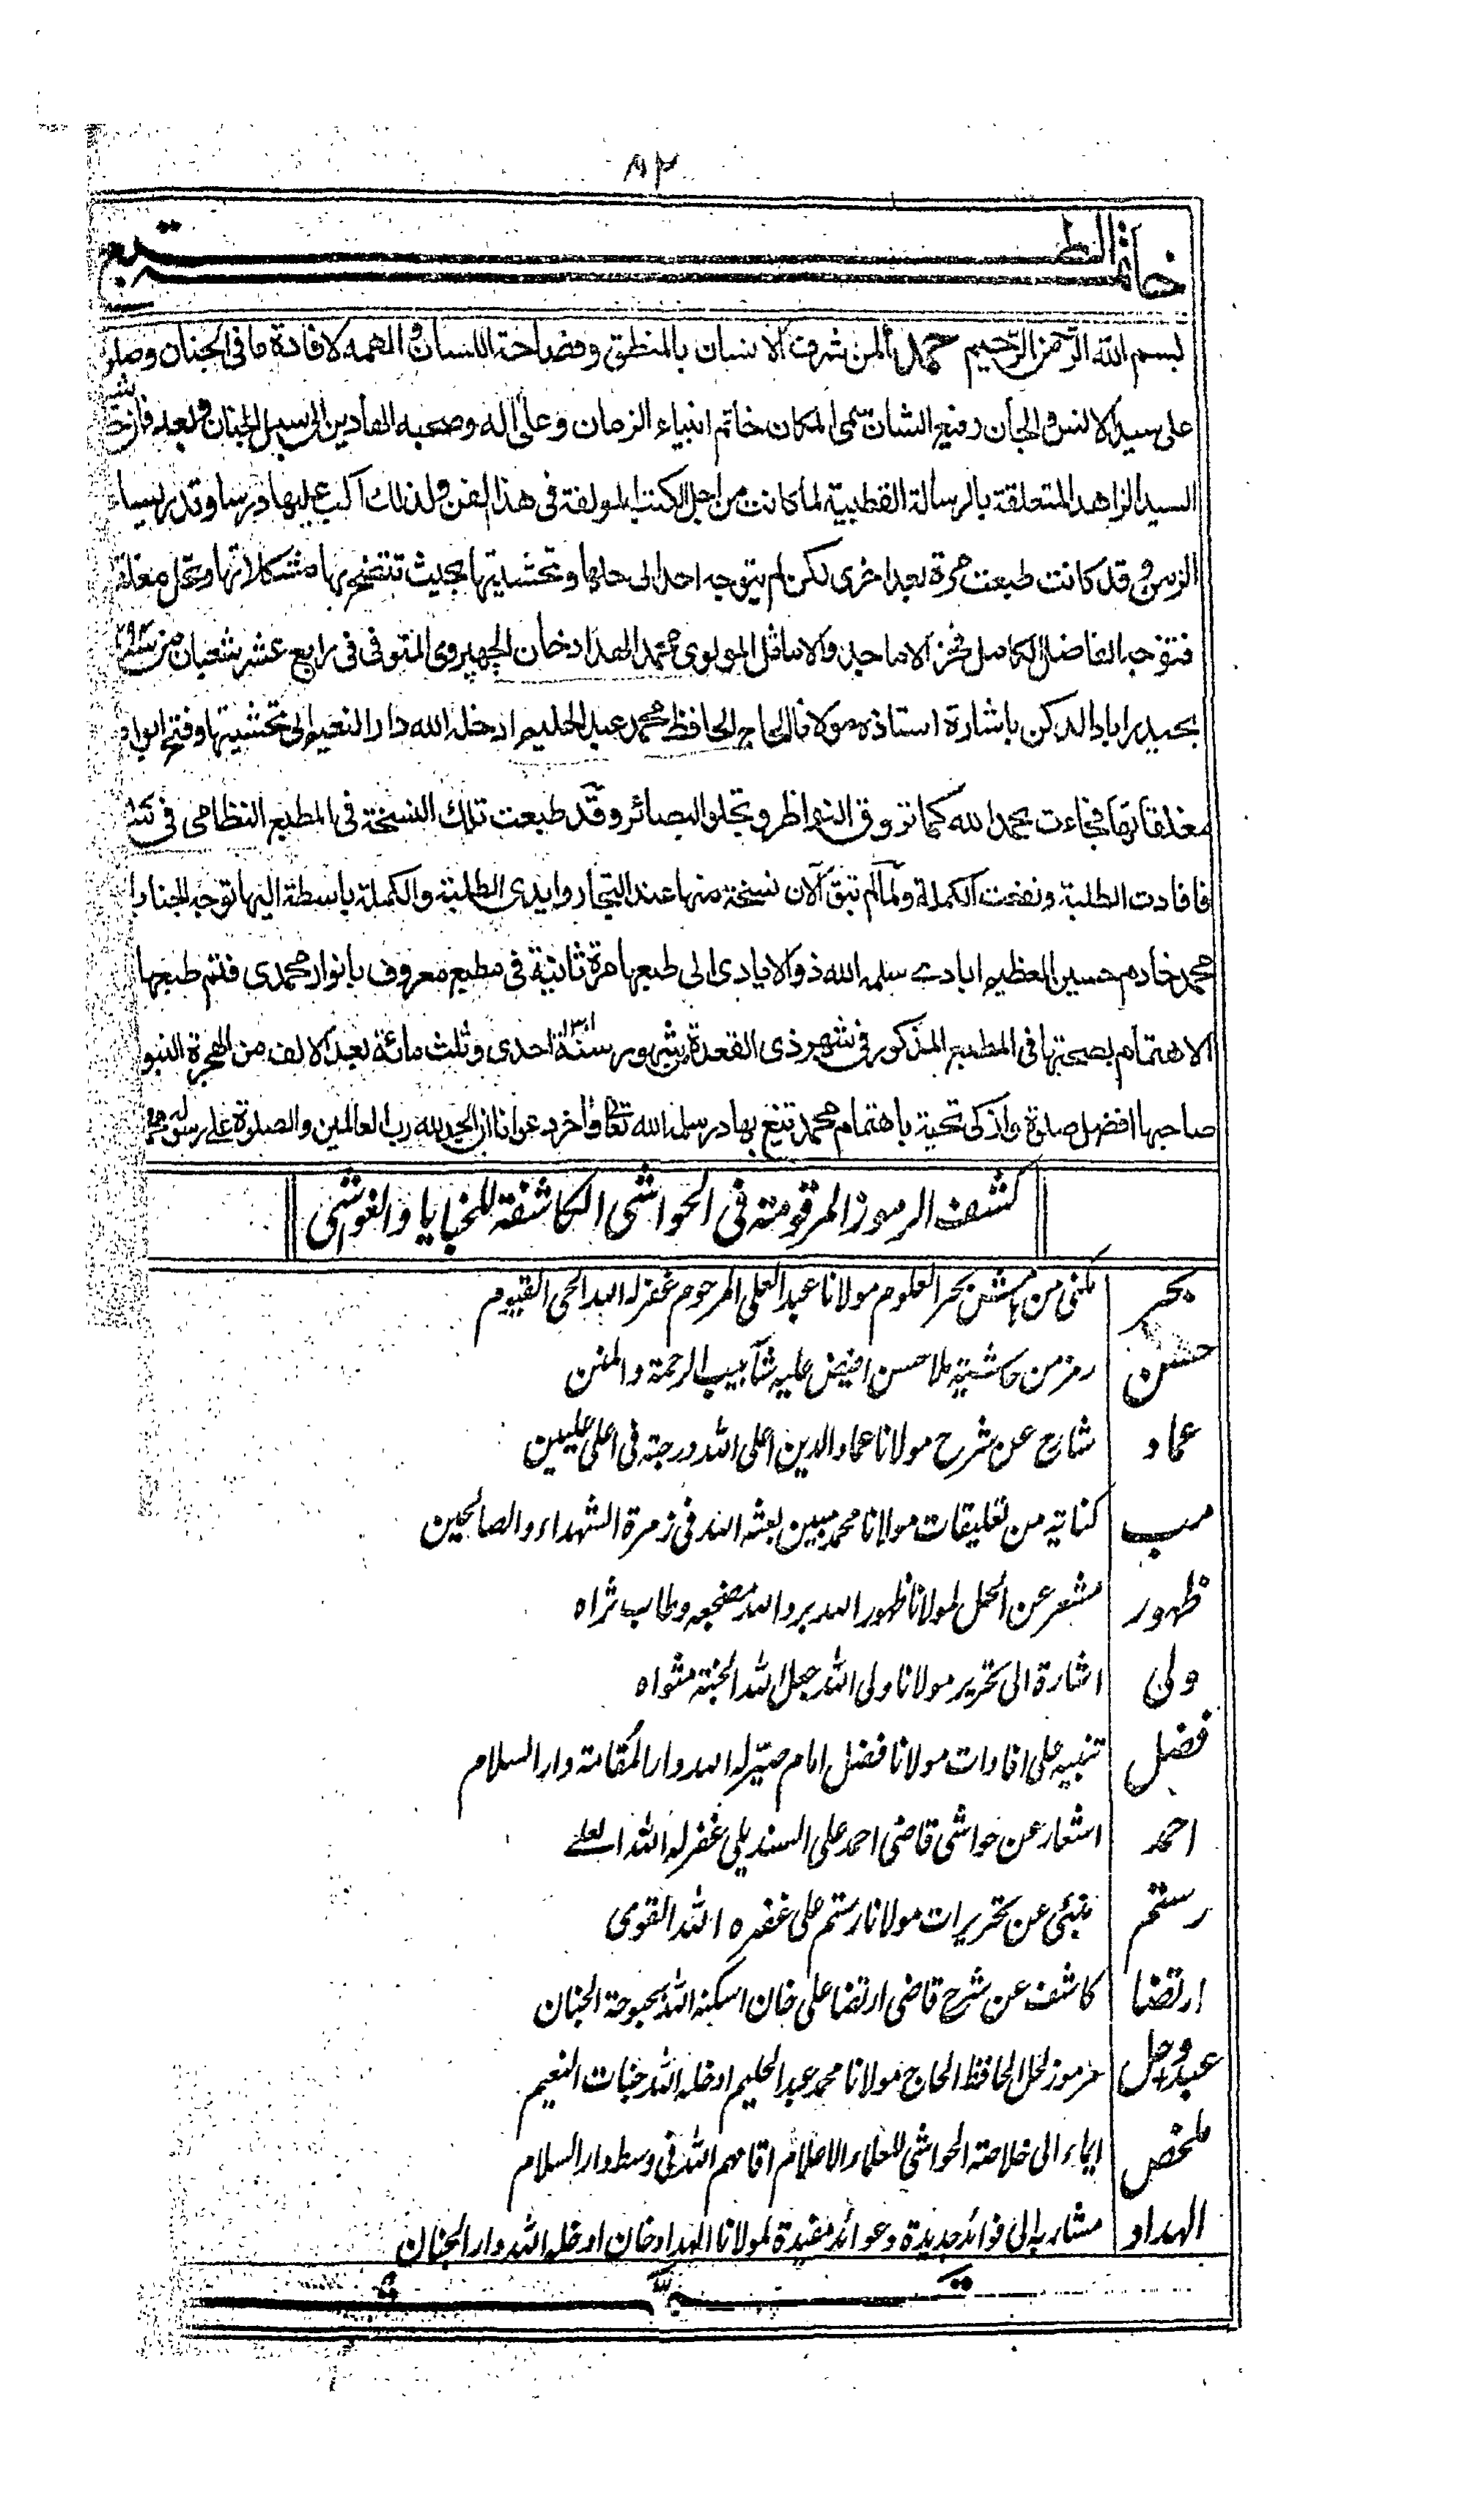 ٨٢
خاتمة الطبع
بسم الله الرحمن الرحيم حمدا لمن شرف الانسان بالمنطق وفصاحة اللسان والهمه لافادة ما في الجنان وصلوة
على سيد الانس والجان رفيع الشان سمى المكان خاتم انبياء الزمان وعلى اله وصحبه الهادين الى سبيل الجنان وبعد فان حاشية
السيد الزاهد المتعلقة بالرسالة القطبية لما كانت من اجل الكتب المولفة في هذا الفن ولذلك اكب عليها درسا وتدريسا
الزمن وقد كانت طبعت مرة بعد اخرى لكن لم يتوجه احد الى حلها وتحشيتها بحيث تتضح بها مشكلاتها وتحل مغلقا
فتوجه الفاضل الكامل فخر الاماجد والاماثل المولوى محمد الهداد خان الجهپروى المتوفى في رابع عشر شعبان من
بحيدراباد الدكن باشارة استاذه مولانا الحاج الحافظ محمد عبد الحليم ادخله الله دار النعيم الى تحشيتها وفتح ابواب
مغلقاتها فجاءت بحمد الله كما تروق النواظر وتجلو البصائر وقد طبعت تلك النسخة في المطبع النظامى في
فافادت الطلبة ونفعت الكملة ولما لم تبق الان نسخة منها عند التجار وايدى الطلبة والكملة باسطة اليها توجه الجناب
محمد خادم حسين العظيم ابادے سلمه الله ذو الايادى الى طبعها مرة ثانية في مطبع معروف بانوار محمدى فتم طبعها
الاهتمام بصحتها في المطبع المذكور في شهر ذى القعدة من شهور سنة ١٣٠١ احدى وثلث مائة بعد الالف من الهجرة النبو
صاحبها افضل صلوة وازكى تحية باهتمام محمد تيغ بهادر سلمه الله تعالى واخر دعوانا ان الحمد لله رب العالمين والصلوة على رسوله محمد
كشف الرموز المرقومة في الحواشى الكاشفة للخبايا والغواشى
بحر منبئ من منهية بحر العلوم مولانا عبد العلى المرحوم غفر له الله الحى القيوم
حسن رمز من حاشية ملا حسن افيض عليه شآبيب الرحمة والمنن
عماد شارح عن شرح مولانا عماد الدين اعلى الله درجته فى اعلى عليين
مب كناية من تعليقات مولانا محمد مبين بعثه الله فى زمرة الشهداء والصالحين
ظهور مشعر عن الحل لمولانا ظهور الله برد الله مضجعه وطاب ثراه
ولى اشارة الى تحرير مولانا ولى الله جعل الله الجنة مثواه
فضل تنبيه على افادات مولانا فضل امام صيّر له الله دار المقامة دار السلام
احمد اشعار عن حواشى قاضى احمد على السنديلى غفر له الله العلے
رستم منبئى عن تحريرات مولانا رستم على غفره الله القوى
ارتضا كاشف عن شرح قاضى ارتضا على خان اسكنه الله بحبوحة الجنان
عبد وحل مرموز لحل الحافظ الحاج مولانا محمد عبد الحليم ادخله الله جنات النعيم
ملخص ايماء الى خلاصة الحواشى للعلماء الاعلام اقامهم الله فى وسط دار السلام
الهداد مشار به الى فوائد جديدة وعوائد مفيدة لمولانا الهداد خان ادخله الله دار الجنان